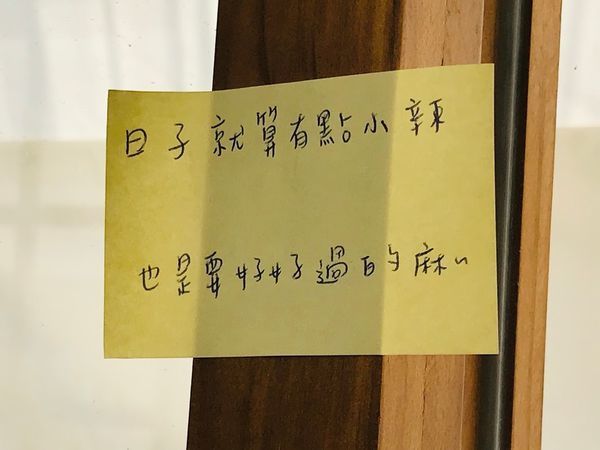 日子就算有點小辣
也是要好好過的麻"